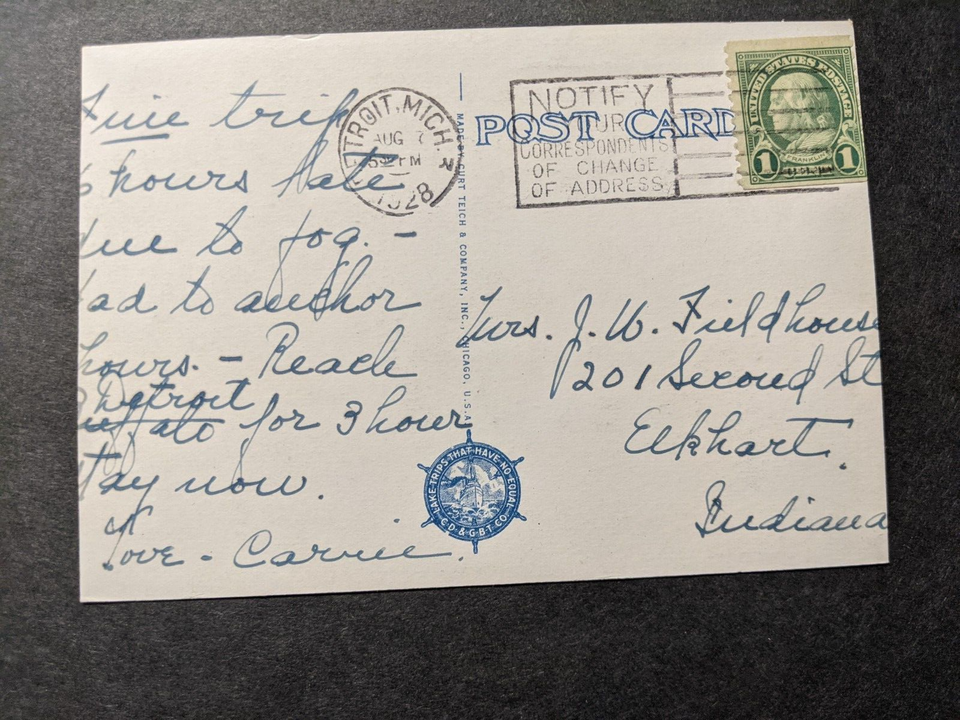 Fine trip
6 hours late
due to fog. -
had to anchor
hours. - Reach
Detroit
Buffalo for 3 hour
stay now.
Love - Carrie.
DETROIT, MICH.
AUG 7
PM
1928
MADE BY CURT TEICH & COMPANY, INC., CHICAGO, U.S.A.
NOTIFY
YOUR
CORRESPONDENTS
OF CHANGE
OF ADDRESS
POST CARD
UNITED STATES POSTAGE
FRANKLIN
1 1
Mrs. J. W. Fieldhouse
1201 Second St
Elkhart.
Indiana
LAKE TRIPS THAT HAVE NO EQUAL
C. D & G B T CO.